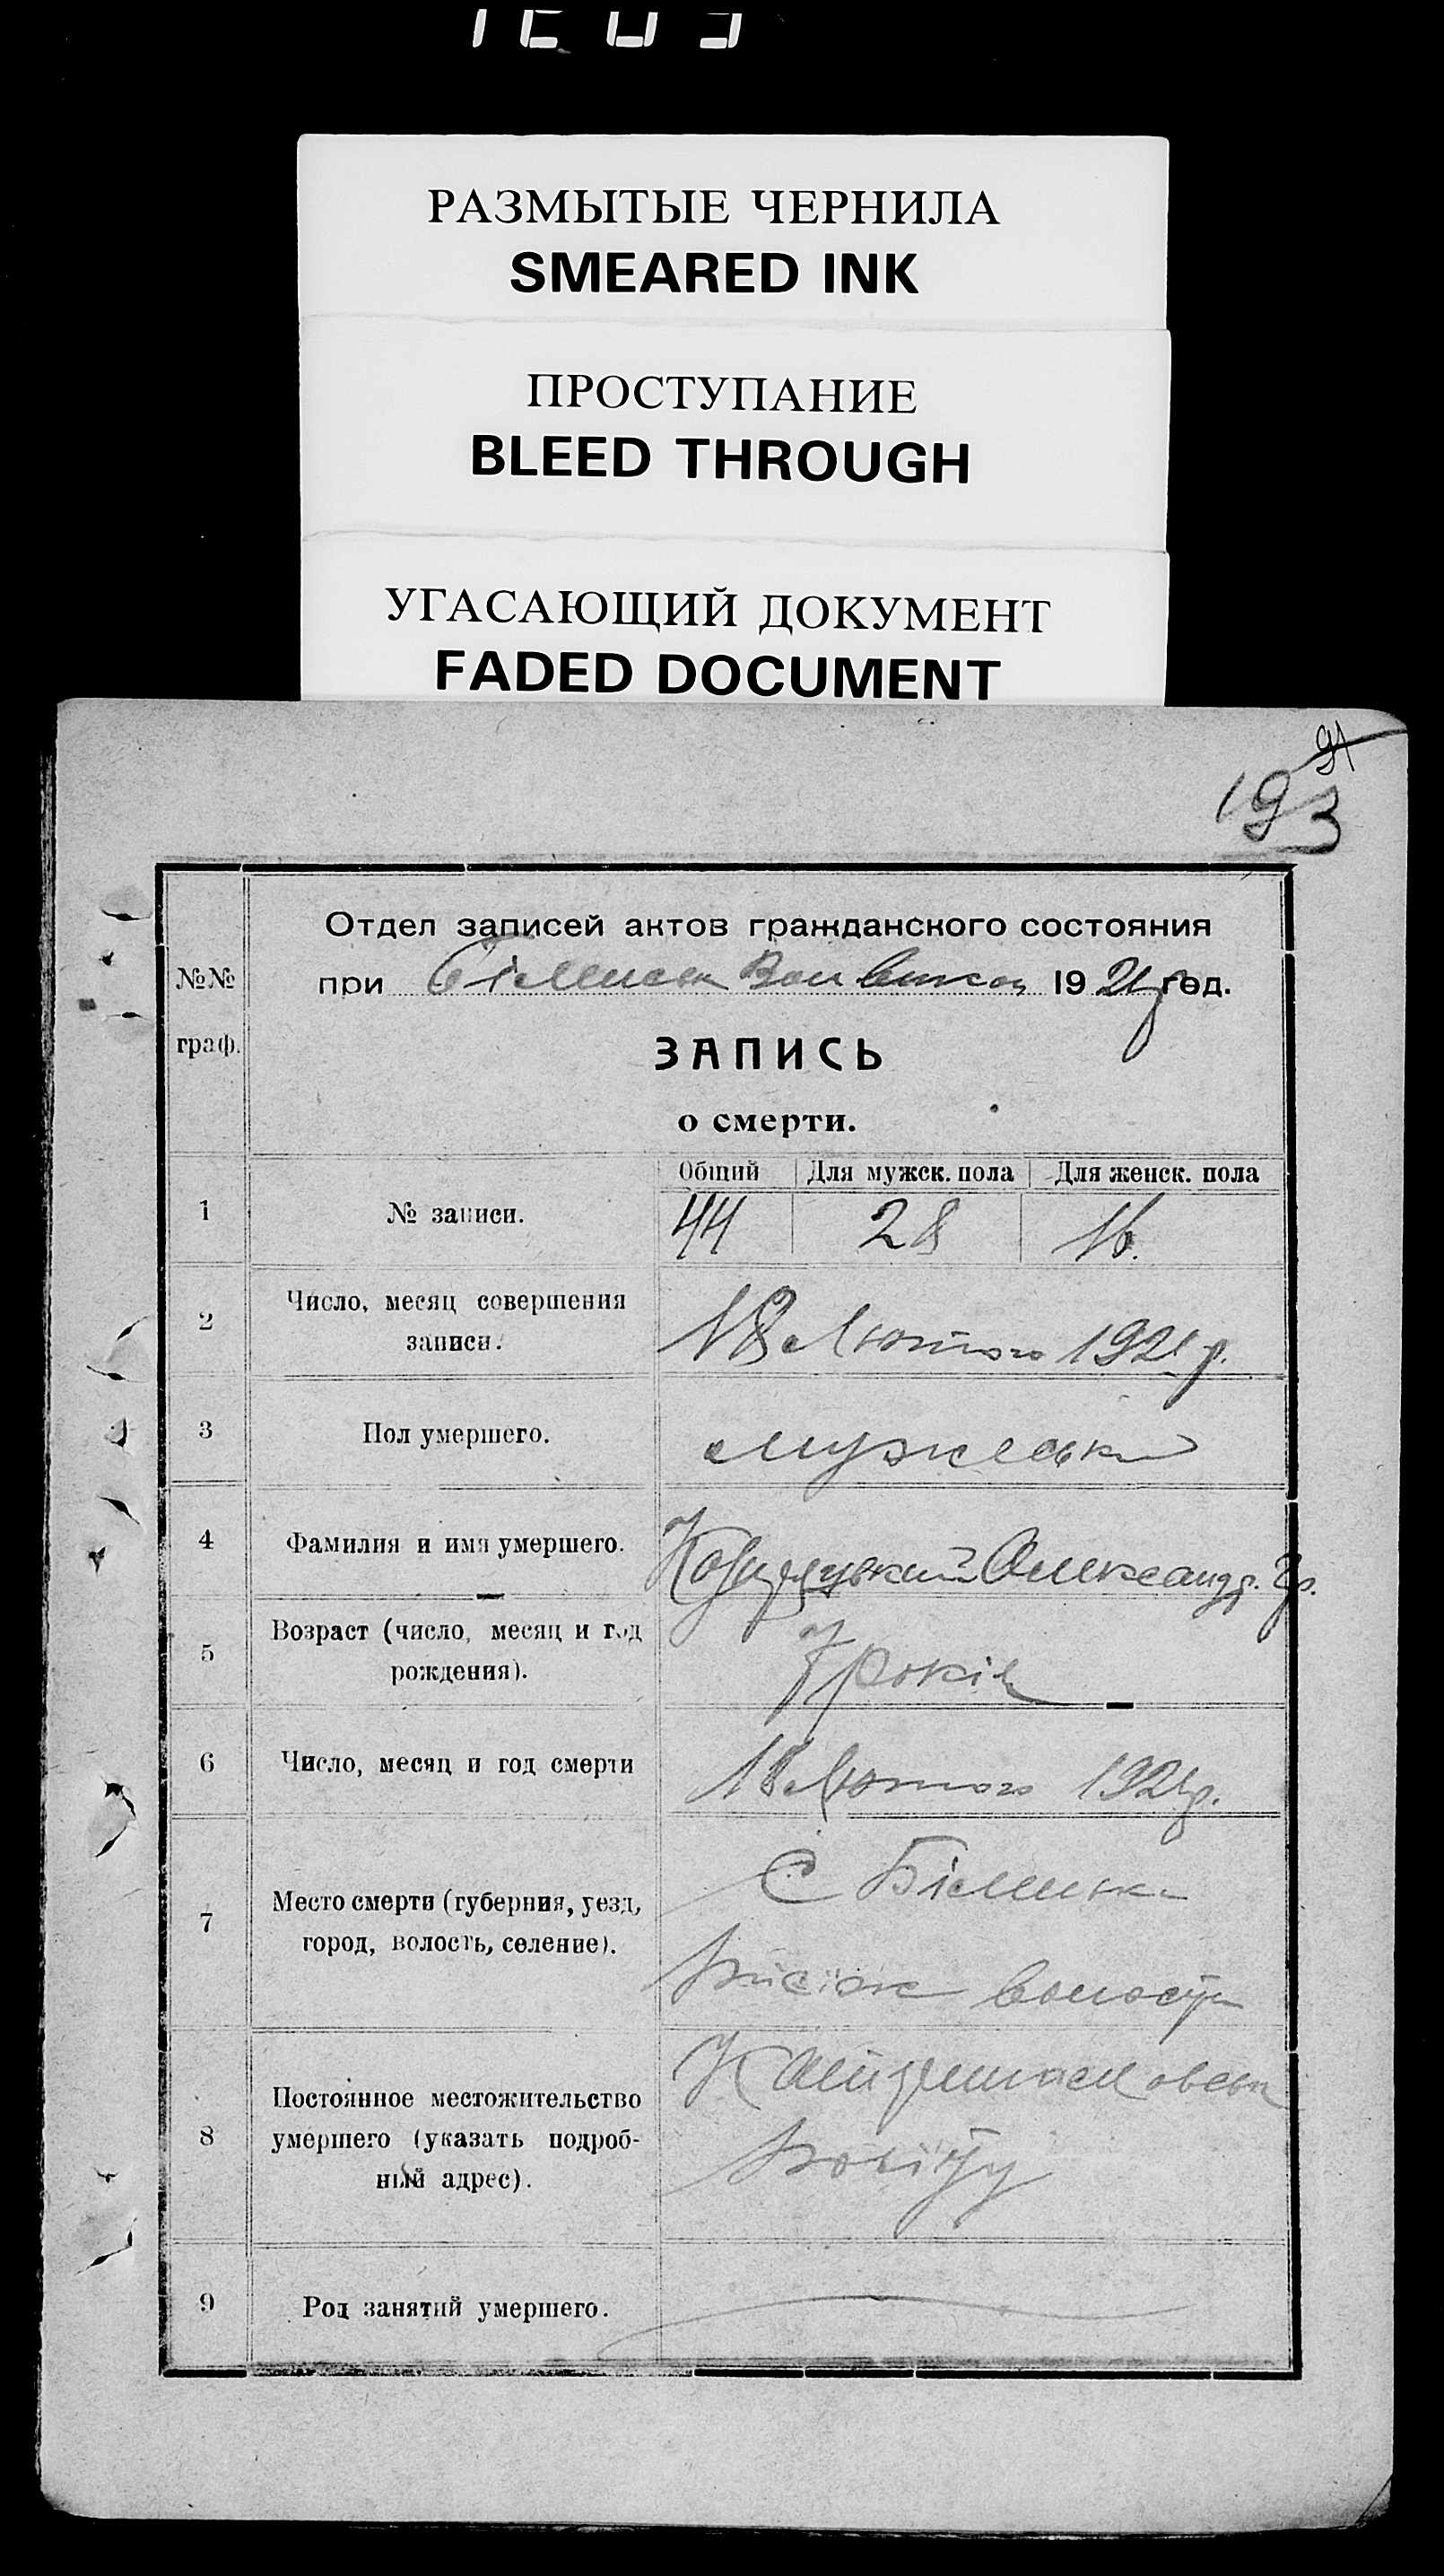 РАЗМЫТЫЕ ЧЕРНИЛА
SMEARED INK
ПРОСТУПАНИЕ
BLEED THROUGH
УГАСАЮЩИЙ ДОКУМЕНТ
FADED DOCUMENT
91
193
№№ граф.
Отдел записей актов гражданского состояния
при 1921 р год.
ЗАПИСЬ
о смерти.
Общий Для мужск. пола Для женск. пола
1 № записи. 44 28 16.
2 Число, месяц совершения
записи. 18 Лютого 1921 р.
3 Пол умершего. мужеськ
4 Фамилия и имя умершего. Олександр. Гр.
5 Возраст (число, месяц и год
рождения). 7 років
6 Число, месяц и год смерти 18 Лютого 1921 р.
7 Место смерти (губерния, уезд,
город, волость, селение). С
8 Постоянное местожительство
умершего (указать подроб-
ный адрес). повіту
9 Род занятий умершего.